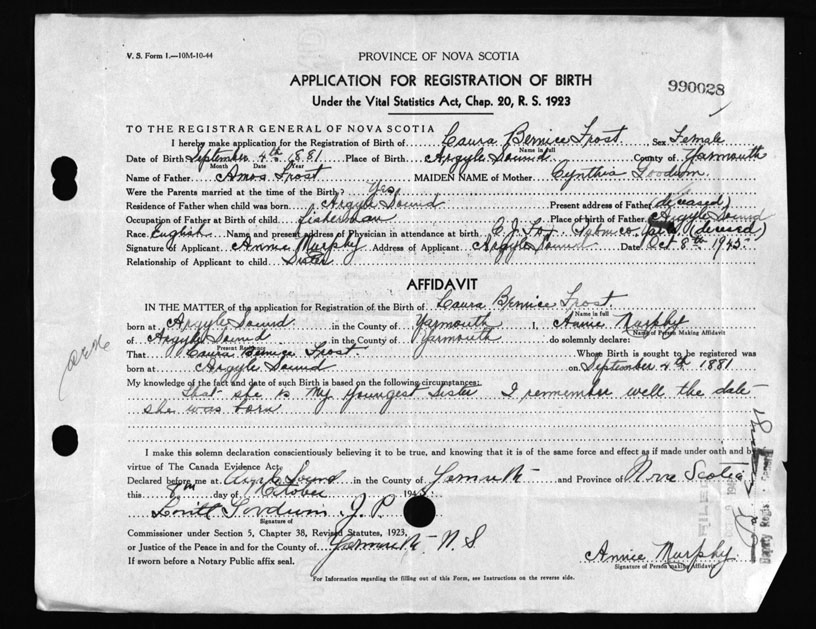 V. S. Form 1.—10M-10-44
PROVINCE OF NOVA SCOTIA
APPLICATION FOR REGISTRATION OF BIRTH
990028
Under the Vital Statistics Act, Chap. 20, R. S. 1923
TO THE REGISTRAR GENERAL OF NOVA SCOTIA
I hereby make application for the Registration of Birth of Laura Bernice Frost Sex Female
Name in full
Date of Birth September 4th 1881 Place of Birth Argyle Sound County of Yarmouth
Month Date Year
Name of Father Amos Frost MAIDEN NAME of Mother Cynthia Goodwin
Were the Parents married at the time of the Birth? Yes
Residence of Father when child was born Argyle Sound Present address of Father (deceased)
Occupation of Father at Birth of child fisherman Place of birth of Father Argyle Sound
Race English Name and present address of Physician in attendance at birth C. J. Fox, Pubnico, (deceased)
Signature of Applicant Annie Murphy Address of Applicant Argyle Sound Date Oct 8th 1945
Relationship of Applicant to child Sister
AFFIDAVIT
IN THE MATTER of the application for Registration of the Birth of Laura Bernice Frost
Name in full
born at Argyle Sound in the County of Yarmouth I, Annie Murphy
Name of Person Making Affidavit
of Argyle Sound in the County of Yarmouth do solemnly declare:
Present Residence
That Laura Bernice Frost Whose Birth is sought to be registered was
born at Argyle Sound on September 4th 1881
My knowledge of the fact and date of such Birth is based on the following circumstances:
That she is my youngest sister I remember well the date
she was born
I make this solemn declaration conscientiously believing it to be true, and knowing that it is of the same force and effect as if made under oath and by
virtue of The Canada Evidence Act.
Declared before me at Argyle Sound in the County of Yarmouth and Province of Nova Scotia
this 8th day of October 194
Goodwin J. P.
Signature of
Commissioner under Section 5, Chapter 38, Revised Statutes, 1923,
or Justice of the Peace in and for the County of Yarmouth N. S.
If sworn before a Notary Public affix seal.
Annie Murphy
Signature of Person making Affidavit
For Information regarding the filling out of this Form, see Instructions on the reverse side.
Deputy Regis